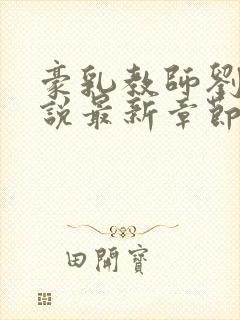 豪乳教師劉
說最新章節
田開寶